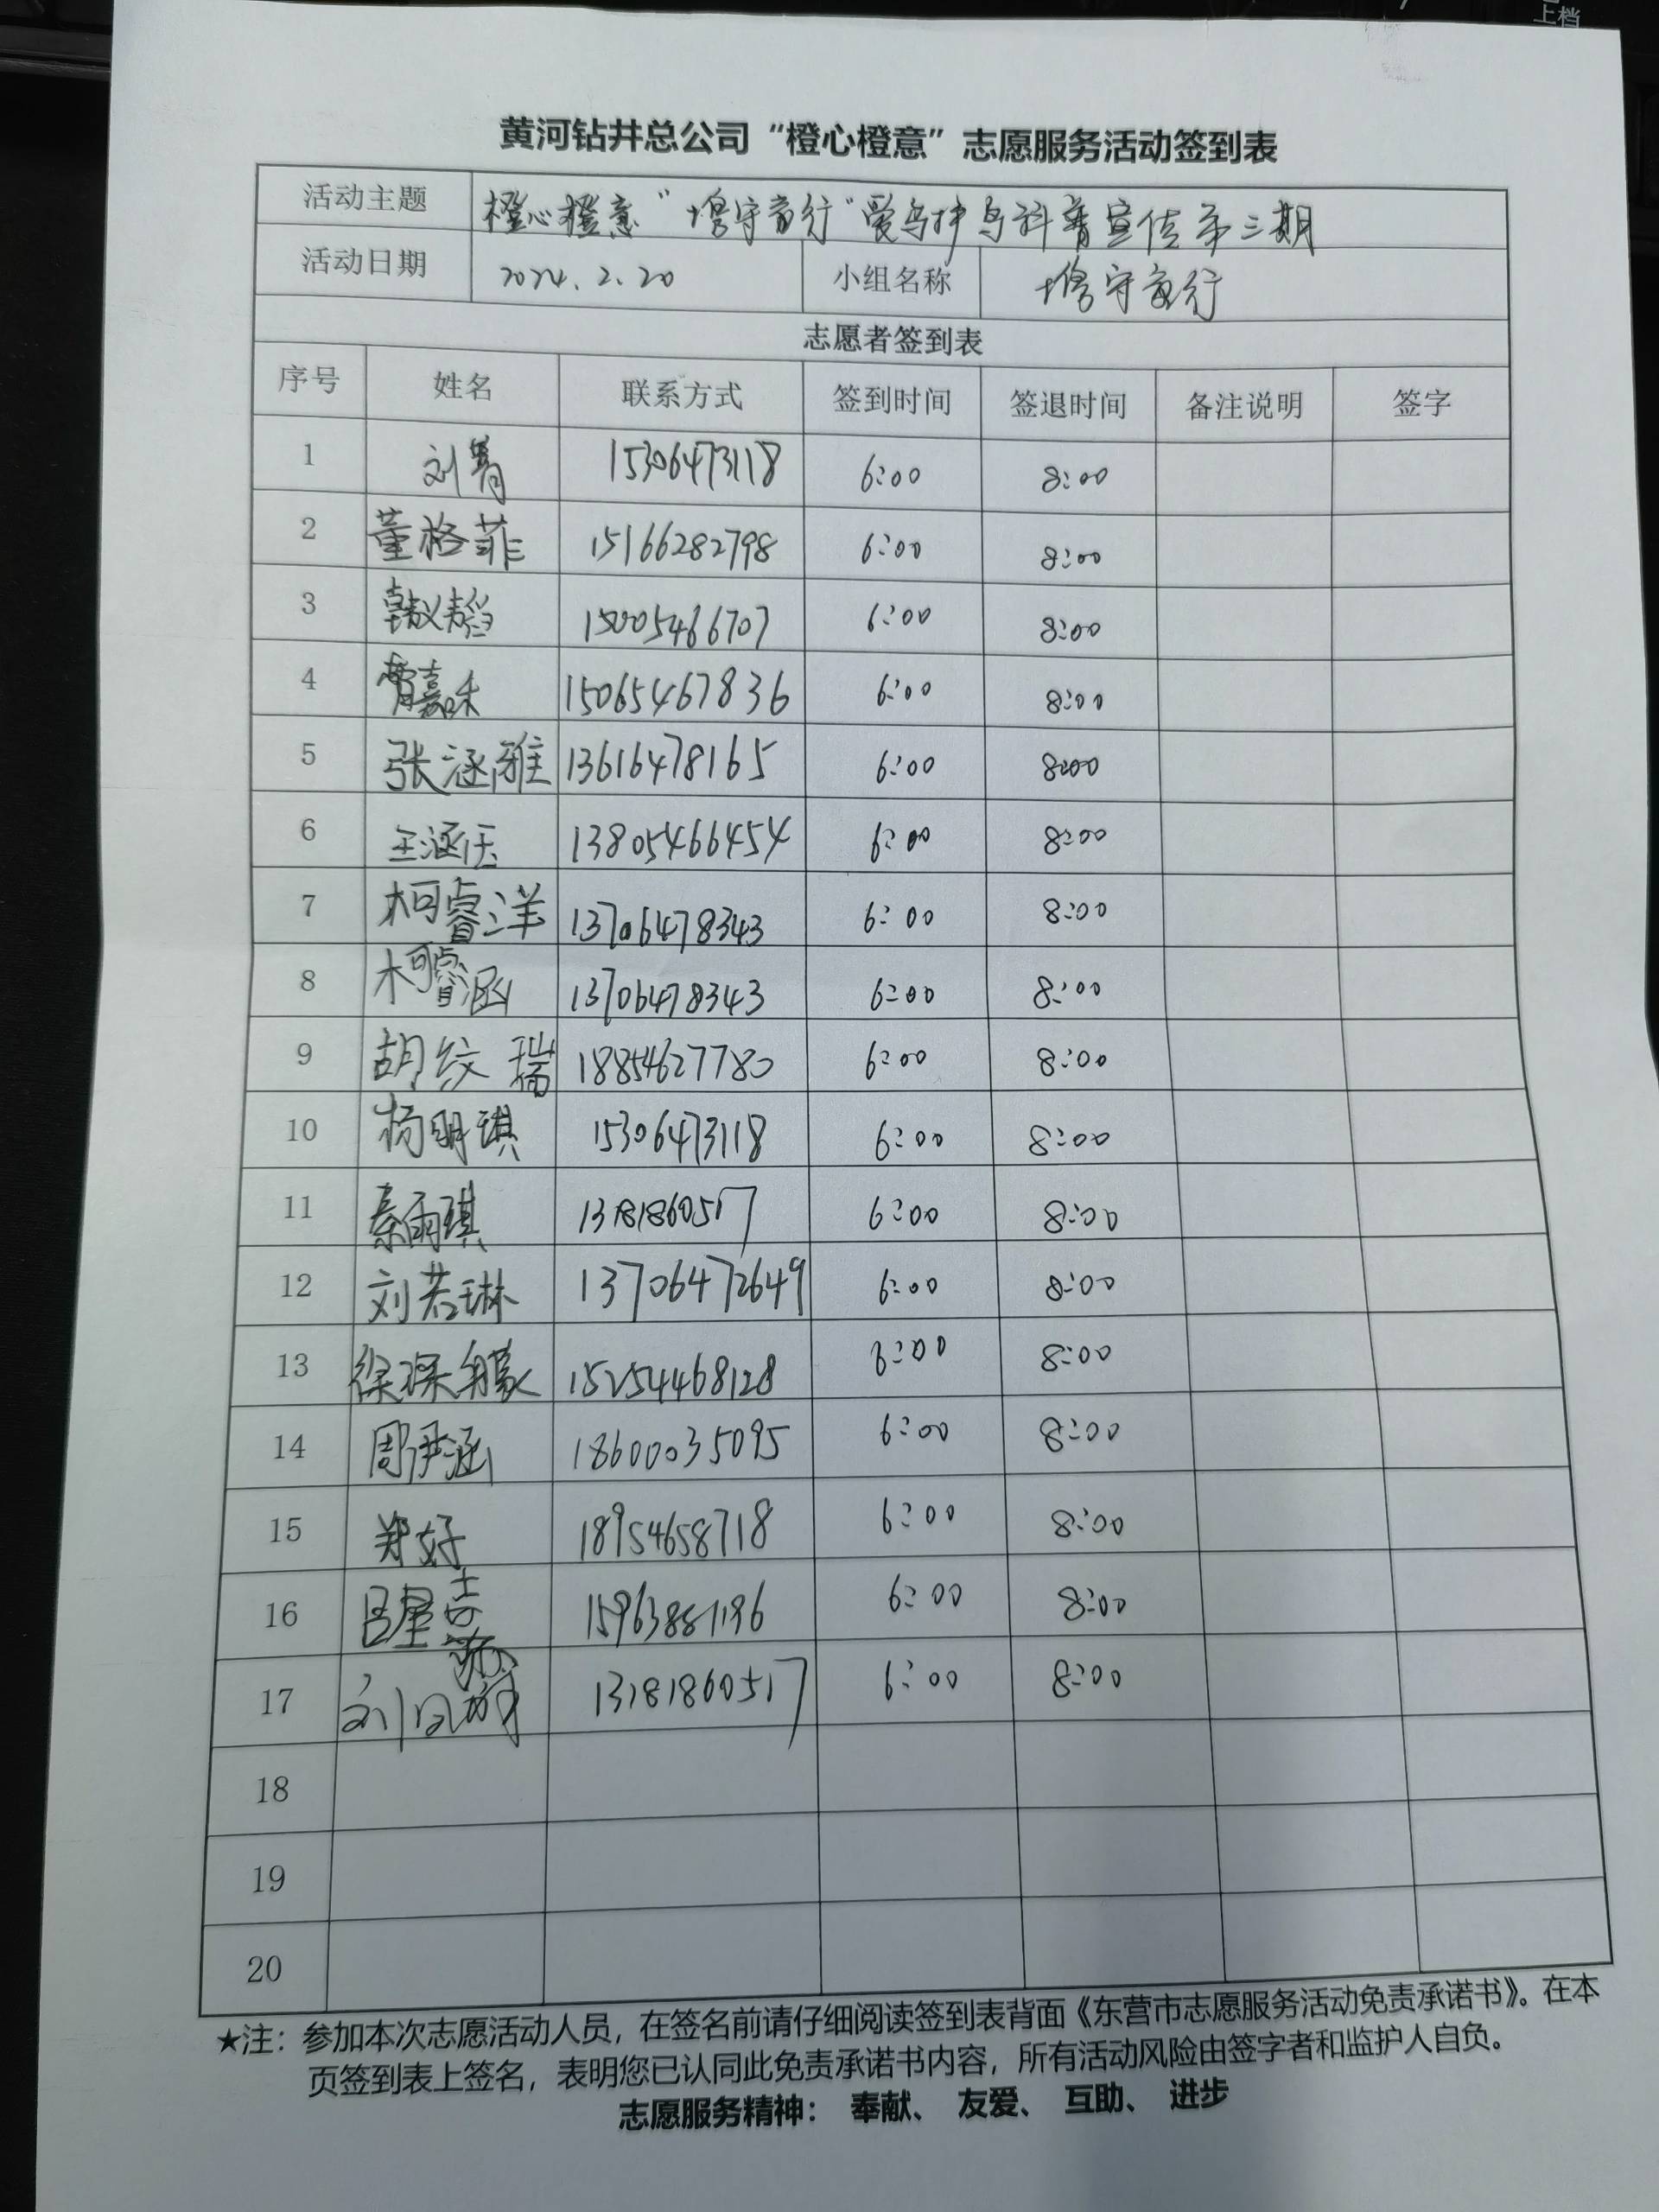 上档
黄河钻井总公司“橙心橙意”志愿服务活动签到表
活动主题 橙心橙意“鸽守前行”爱鸟护鸟科普宣传第三期
活动日期 2024.2.20 小组名称
志愿者签到表
序号 姓名 联系方式 签到时间 签退时间 备注说明 签字
1 刘菁 15306473118 6:00 8:00
2 董格菲 15166282798 6:00 8:00
3 韩义韬 15005466707 6:00 8:00
4 曹嘉味 15065467836 6:00 8:00
5 张涵雅 13616478165 6:00 8:00
6 王涵 13805466454 6:00 8:00
7 柯睿洋 13706478343 6:00 8:00
8 柯睿涵 13706478343 6:00 8:00
9 胡纹瑞 18854627780 6:00 8:00
10 杨明琪 15306473118 6:00 8:00
11 秦雨琪 13181860517 6:00 8:00
12 刘若琳 13706472649 6:00 8:00
13 徐琛 15254468128 6:00 8:00
14 周伊涵 18600035095 6:00 8:00
15 郑好 18954658718 6:00 8:00
16 吕星 15963881196 6:00 8:00
17 刘 13181860517 6:00 8:00
18
19
20
★注：参加本次志愿活动人员，在签名前请仔细阅读签到表背面《东营市志愿服务活动免责承诺书》。在本
页签到表上签名，表明您已认同此免责承诺书内容，所有活动风险由签字者和监护人自负。
志愿服务精神： 奉献、 友爱、 互助、 进步